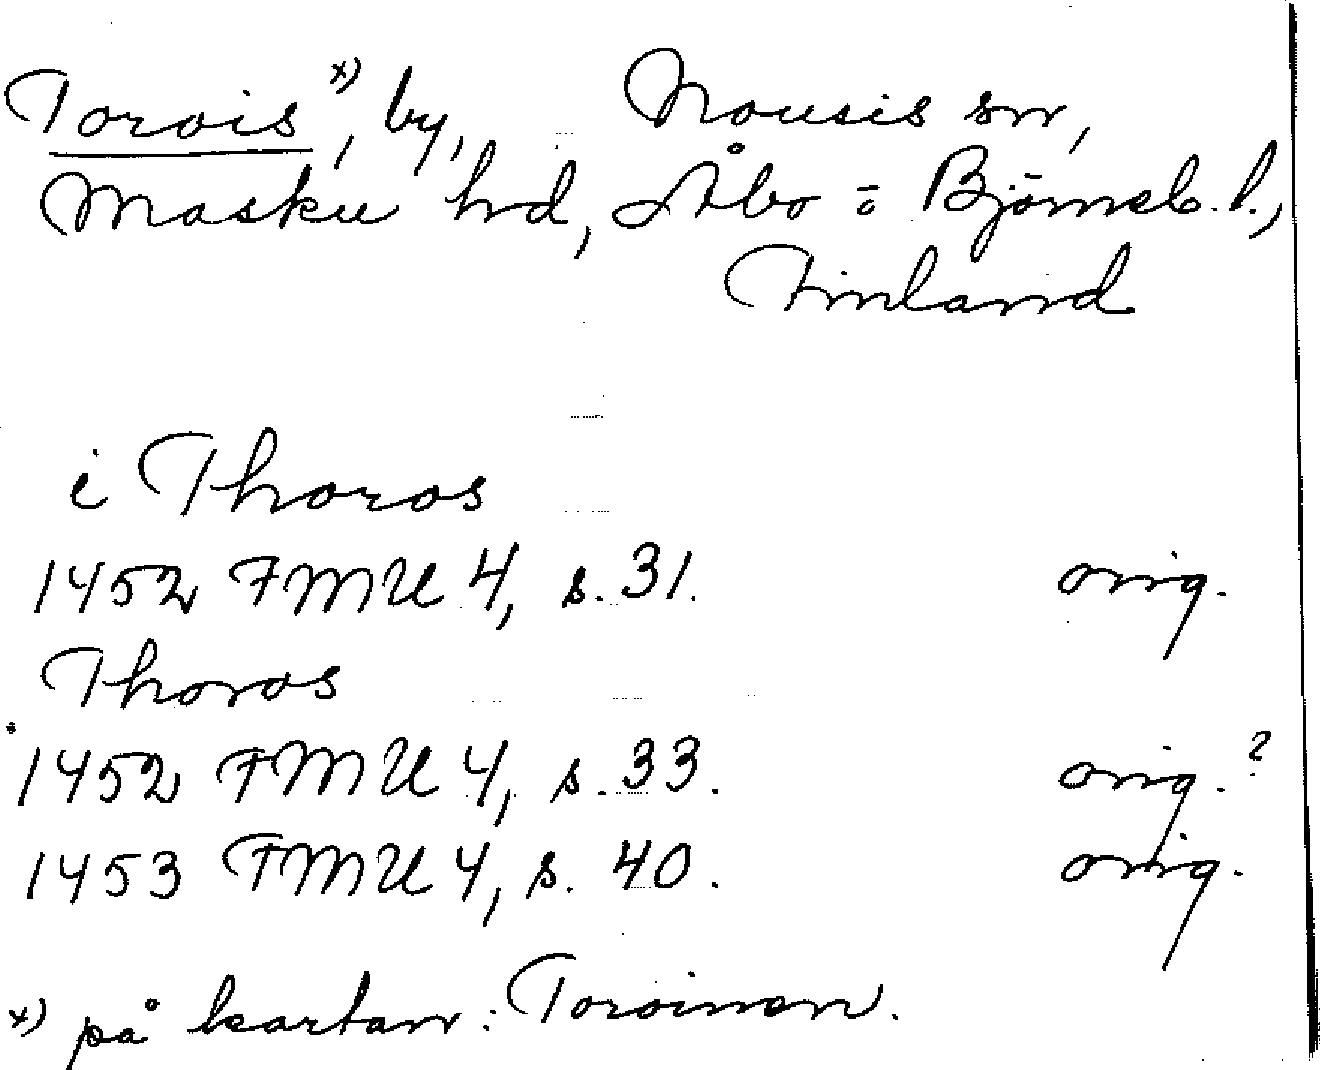 Torois x), by, Nousis sn,
Masku hd, Åbo = Björneb. l.,
Finland
i Thoros
1452 FMU 4, s. 31. orig.
Thoros
1452 FMU 4, s. 33. orig. ?
1453 FMU 4, s. 40. orig.
x) på kartan: Toroinen.